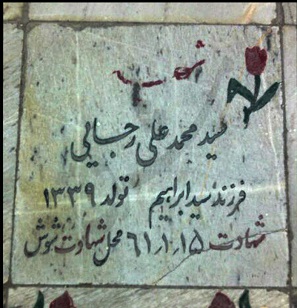 شهید
سید محمد علی رجایی
فرزند سید ابراهیم تولد ۱۳۳۹
شهادت ۶۱٫۱٫۱۵ محل شهادت شوش